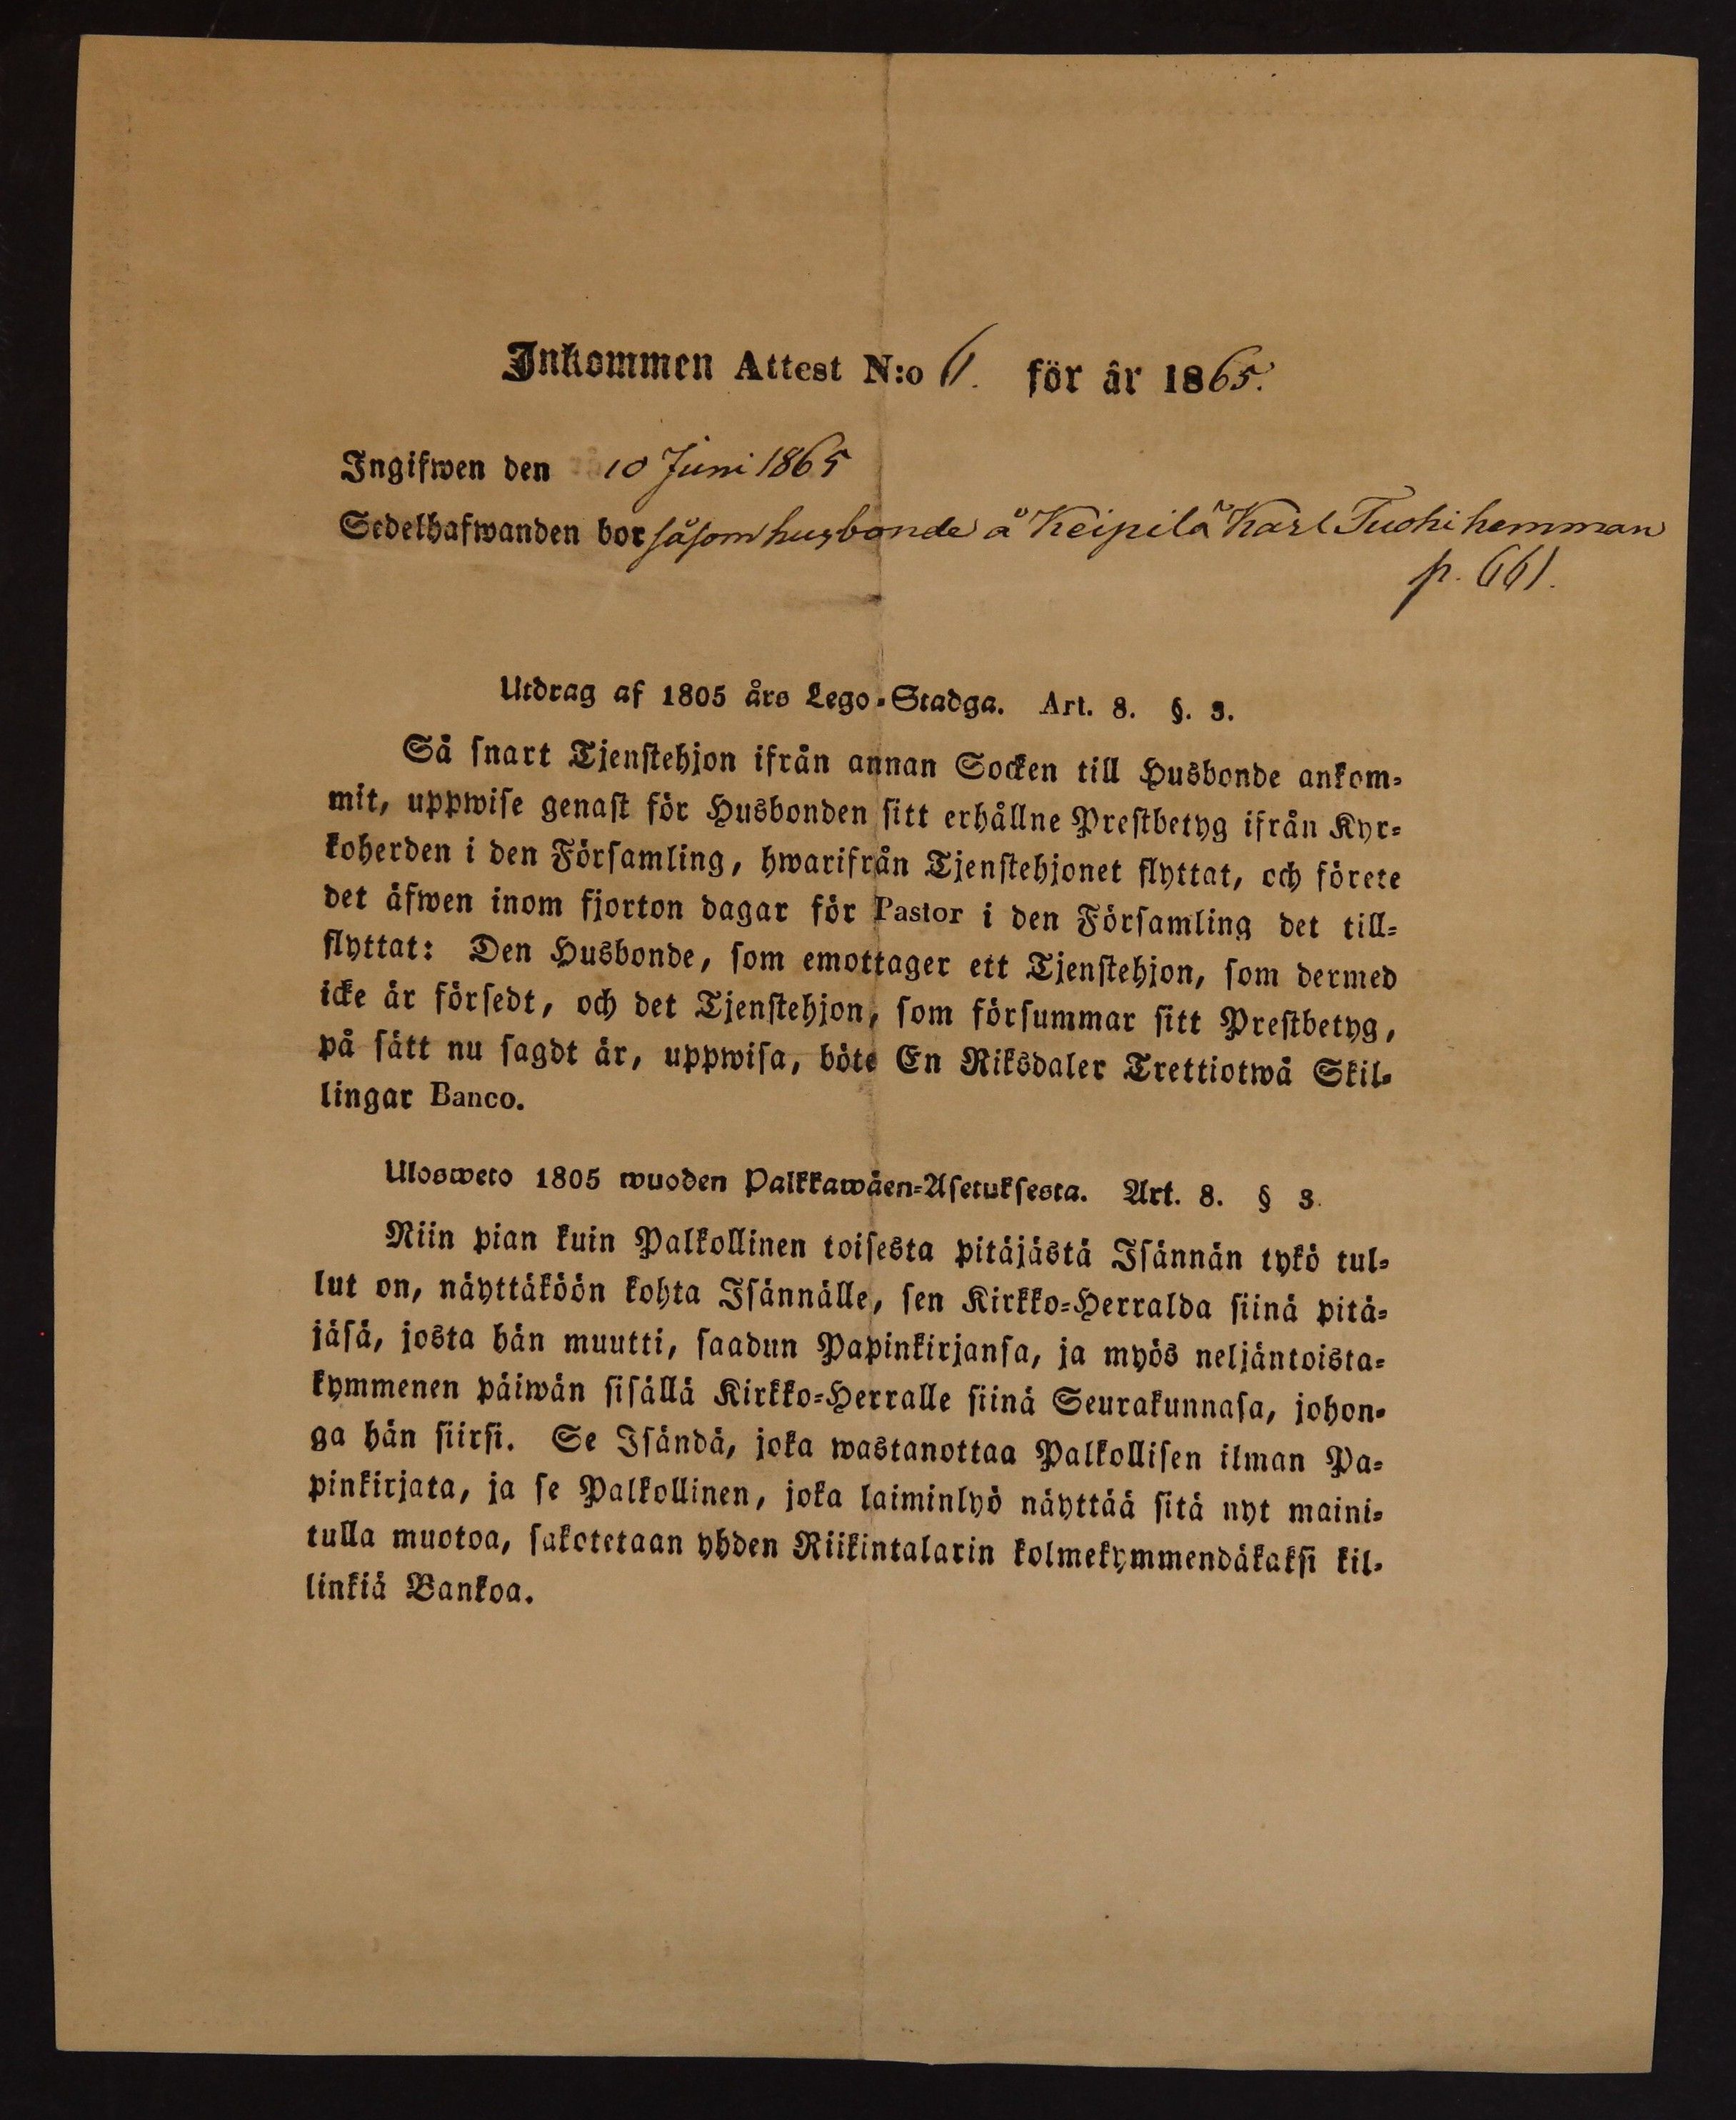 Inkommen Attest N:o 6. för år 1865.
Ingifwen den 10 Juni 1865
Sedelhafwanden bor såsom husbonde å Keipilä Karl Tuohi hemman
p. 661.
Utdrag af 1805 års Lego-Stadga. Art. 8. §. 3.
Så snart Tjenstehjon ifrån annan Socken till Husbonde ankom-
mit, uppwise genast för Husbonden sitt erhållne Prestbetyg ifrån Kyr-
koherden i den Församling, hwarifrån Tjenstehjonet flyttat, och förete
det äfwen inom fjorton dagar för Pastor i den Församling det till-
flyttat: Den Husbonde, som emottager ett Tjenstehjon, som dermed
icke är försedt, och det Tjenstehjon, som försummar sitt Prestbetyg,
på sätt nu sagdt är, uppwisa, böte En Riksdaler Trettiotwå Skil-
lingar Banco.
Ulosweto 1805 wuoden Palkkawäen-Asetuksesta. Art. 8. § 3.
Niin pian kuin Palkollinen toisesta pitäjästä Isännän tykö tul-
lut on, näyttäköön kohta Isännälle, sen Kirkko-Herralda siinä pitä-
jäsä, josta hän muutti, saadun Papinkirjansa, ja myös neljäntoista-
kymmenen päiwän sisällä Kirkko-Herralle siinä Seurakunnasa, johon-
ga hän siirsi. Se Isändä, joka wastanottaa Palkollisen ilman Pa-
pinkirjata, ja se Palkollinen, joka laiminlyö näyttää sitä nyt maini-
tulla muotoa, sakotetaan yhden Riikintalarin kolmekymmendäkaksi kil-
linkiä Bankoa.